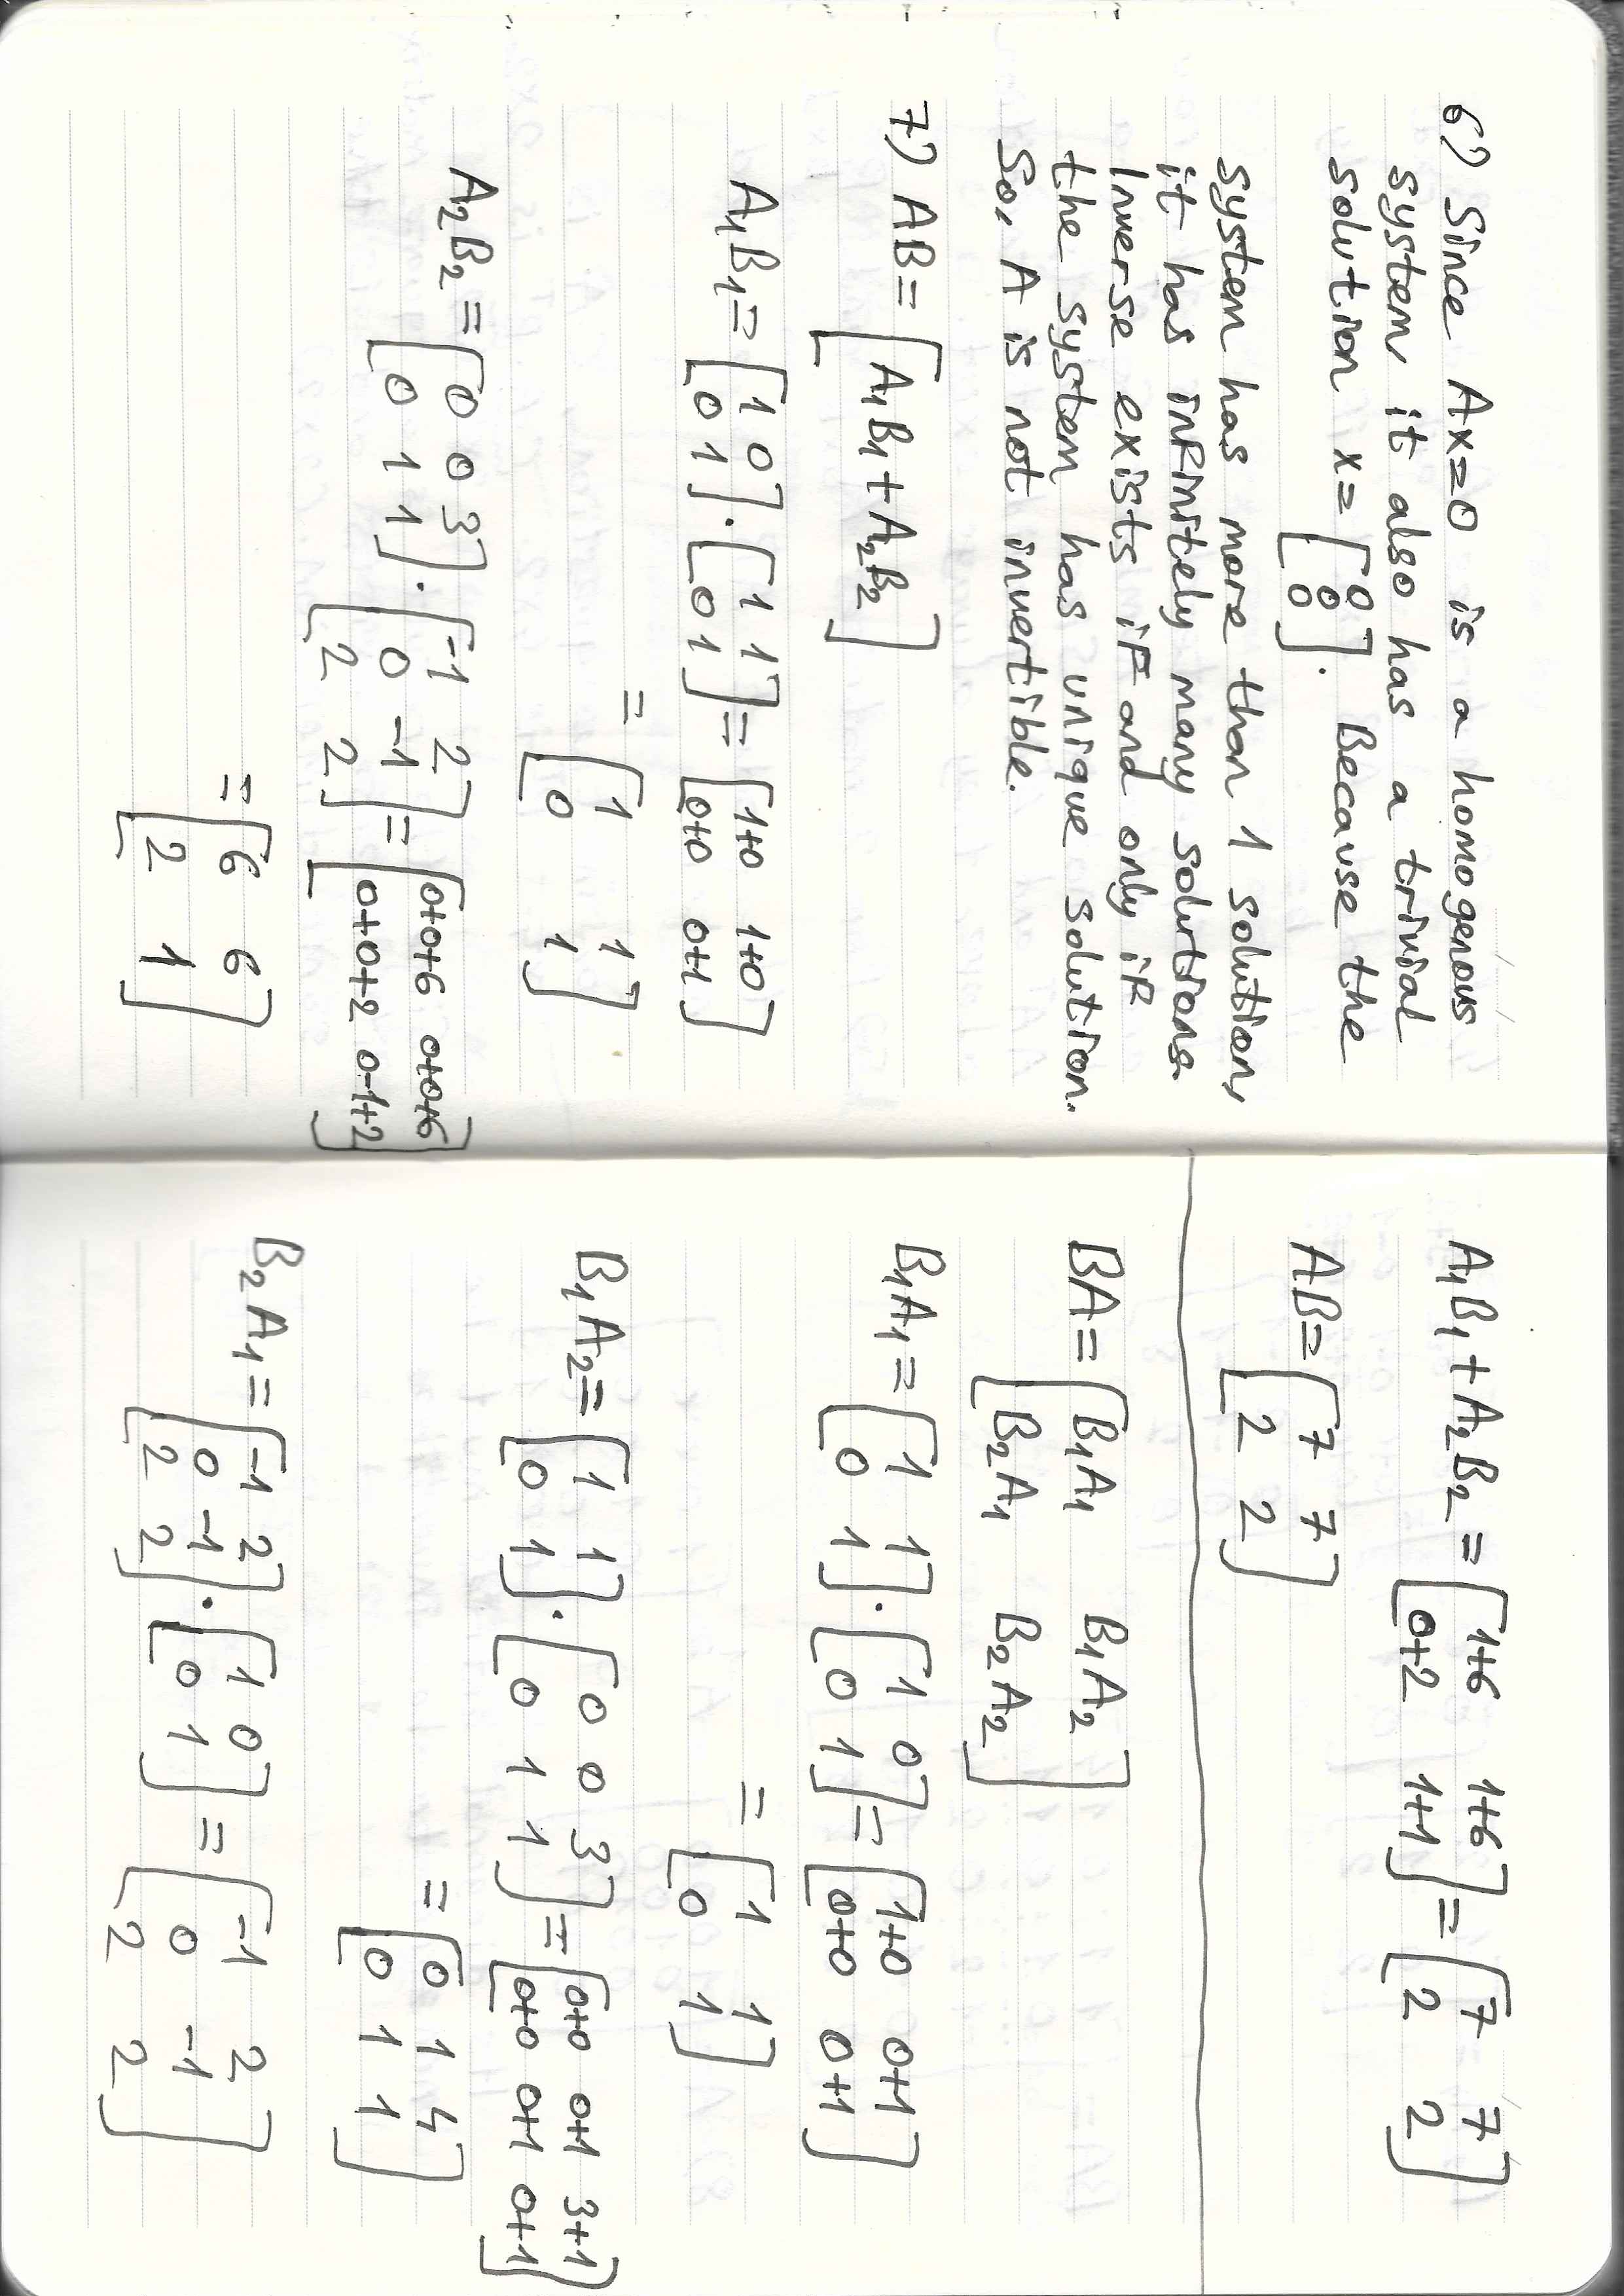 6) Since Ax=0 is a homogenous
system, it also has a trivial
solution x= [0 0 0]. Because the
system has more than 1 solution,
it has infinitely many solutions.
Inverse exists if and only if
the system has unique solution.
So, A is not invertible.
7) AB= [A₁B₁+A₂B₂]
A₁B₁= [1 0; 0 1] · [1 1; 0 1] = [1+0 1+0; 0+0 0+1]
= [1 1; 0 1]
A₂B₂ = [0 0 3; 0 1 1] · [-1 2; 0 -1; 2 2] = [0+0+6 0+0+6; 0+0+2 0-1+2]
= [6 6; 2 1]
A₁B₁+A₂B₂ = [1+6 1+6; 0+2 1+1] = [7 7; 2 2]
AB= [7 7; 2 2]
BA= [B₁A₁ B₁A₂; B₂A₁ B₂A₂]
B₁A₁= [1 1; 0 1] · [1 0; 0 1] = [1+0 0+1; 0+0 0+1]
= [1 1; 0 1]
B₁A₂= [1 1; 0 1] · [0 0 3; 0 1 1] = [0+0 0+1 3+1; 0+0 0+1 0+1]
= [0 1 4; 0 1 1]
B₂A₁= [-1 2; 0 -1; 2 2] · [1 0; 0 1] = [-1 2; 0 -1; 2 2]